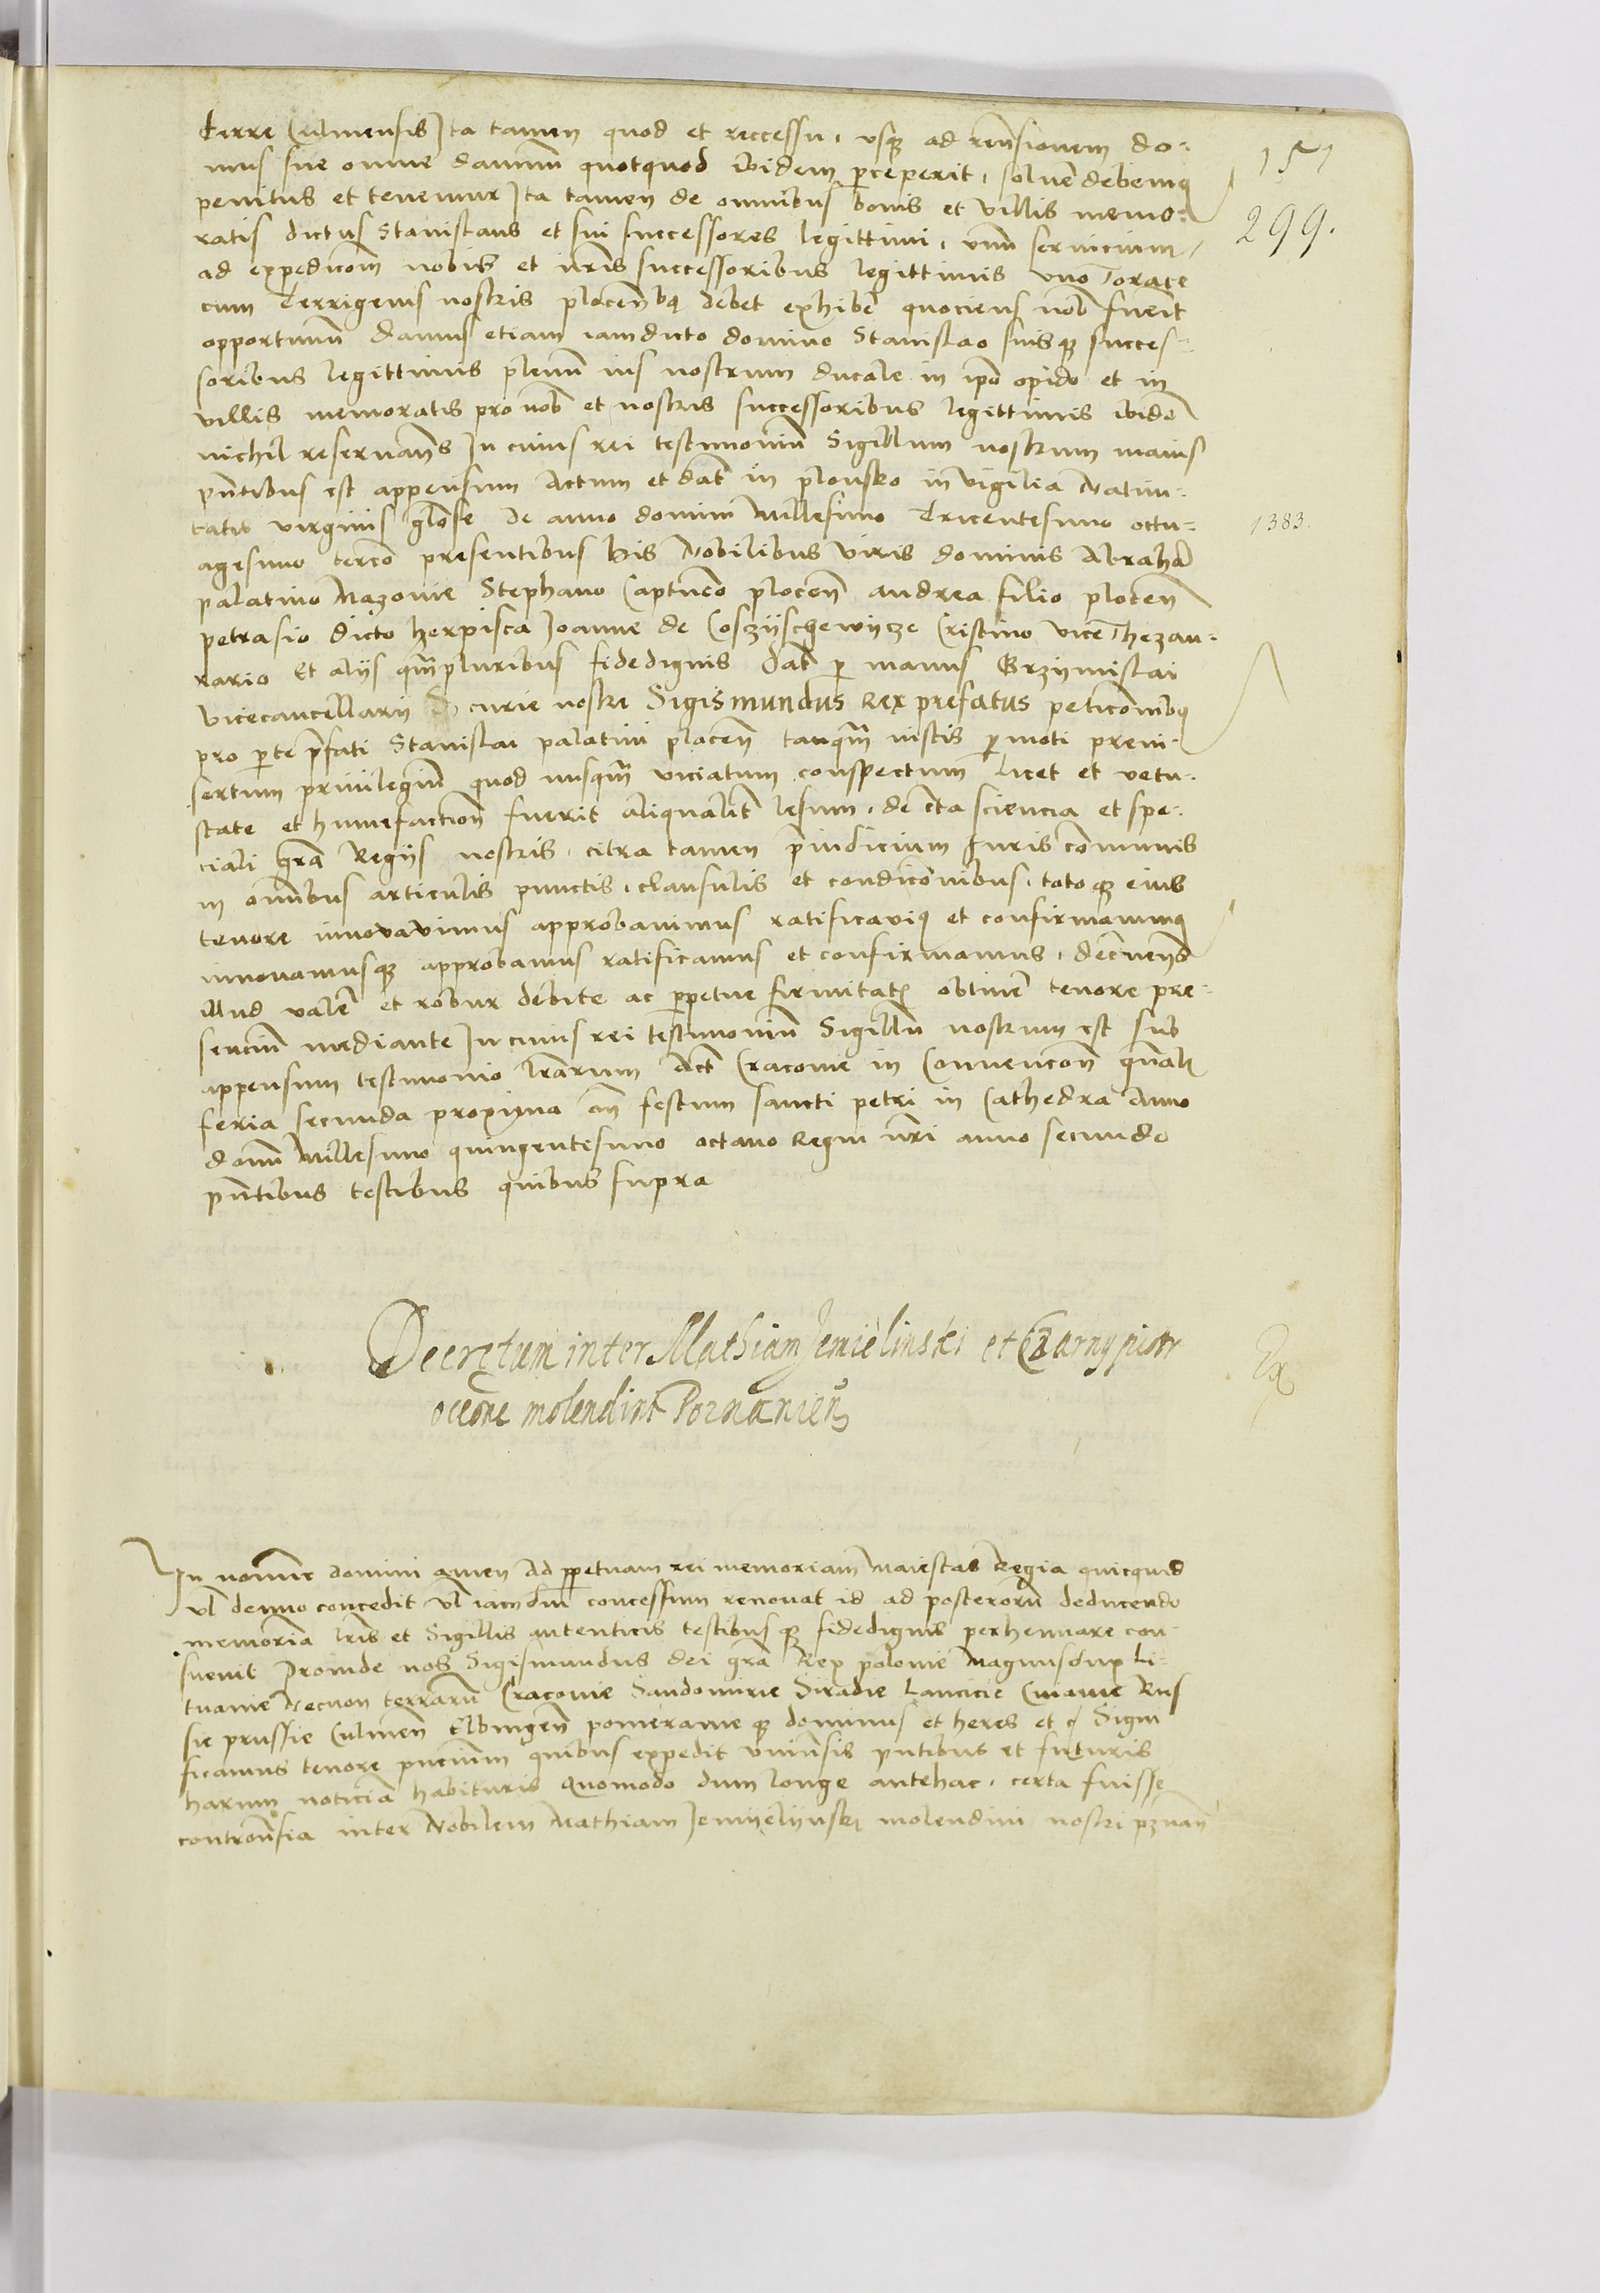 terre Culmensis Ita tamen quod et reccessu, usq ad reũsionem do-
mus sue omne damnũ quotquod ibidem perceperit, soluẽ debemq
penitus et tenemur Ita tamen de omnibus bonis et villis memo-
ratis dictus Stanislaus et sui successores legittimi, unũ servicium
ad expedicom nobis et nr̃is successoribus legittimis uno Torace
cum Terrigenis nostris plocenbq debet exhibẽ quociens nob fuerit
opportunũ damus etiam iamdicto domino Stanislao suisq succes-
soribus legittimis plenũ ius nostrum ducale in ip̃o opido et in
villis memoratis pro nob et nostris successoribus legittimis ibidẽ
nichil reservantes In cuius rei testimoniũ Sigillum nostrum maius
pñtibus est appensum Actum et dat in plonsko in vigilia Nativi-
tatis virginis gl̃ose de anno domini Millesimo Tricentesimo octu-
agesimo tercõ presentibus his Nobilibus viris dominis Abrahã
palatino Mazovie Stephano Captnẽo plocen̄ andrea filio plocen̄
petrasio dicto herpisca Joanne de Coszijschewijcze Cristino viceThezau-
rario Et alijs qm̃pluribus fidedignis dat p manus Grzijmislai
vicecancellarij curie nostre Sigismundus Rex prefatus peticõnibq
pro pte p̃fati Stanislai palatini plocen̄ tanqm̃ iustis p moti prein-
sertum privilegiũ quod nusqm̃ viciatum conspectum licet et vetu-
state et humefaction̄ fuerit aliqualit̃ lesum, de c̃ta sciencia et spe-
ciali gr̃a Regijs nostris, citra tamen p̃iudicium Juris cõmunis
in omnibus articulis punctis, clausulis et condicõnibus, totoq eius
tenore innovavimus approbavimus ratificaviq et confirmavimq
innovamusq approbamus ratificamus et confirmamus, decñens
illud valẽ et robur debite ac ppetue firmitatis obtinẽ tenore pre-
senciũ mediante In cuius rei testimoniũ Sigillũ nostrum est sub
appensum testimonio lr̃arum Act Cracovie in Convencon̄ gñali
feria secunda proxima añ festum sancti petri in Cathedra Anno
domĩ Millesimo quingentesimo octavo Regni nr̃i anno secundo
pñtibus testibus quibus supra
151
299.
1383.
Decretum inter Mathiam Jemielinski et Czarny piotr
molendini Poznanien̄
Ex
In nomine domini amen Ad ppetuam rei memoriam Maiestas Regia quicquid
vl denuo concedit vl iamdiu concessum renovat id ad posterorũ deducendo
memoriã lr̃is et Sigillis autenticis testibusq fidedignis perhennare con-
suevit Proinde nos Sigismundus dei gr̃a Rex polonie Magnus dux Li-
tuanie Necnon terrarũ Cracovie Sandomirie Siradie Lancicie Cuiavie Rus
sie prussie Culmen̄ Elbingen̄ pomeranieq dominus et heres et c̃ Signi
ficamus tenore pñcium quibus expedit universis pñtibus et futuris
harum noticiã habituris Quomodo dum longe antehac, certa fuisse
controv̄sia inter Nobilem Mathiam Jemijelijnski molendini nostri pznan̄